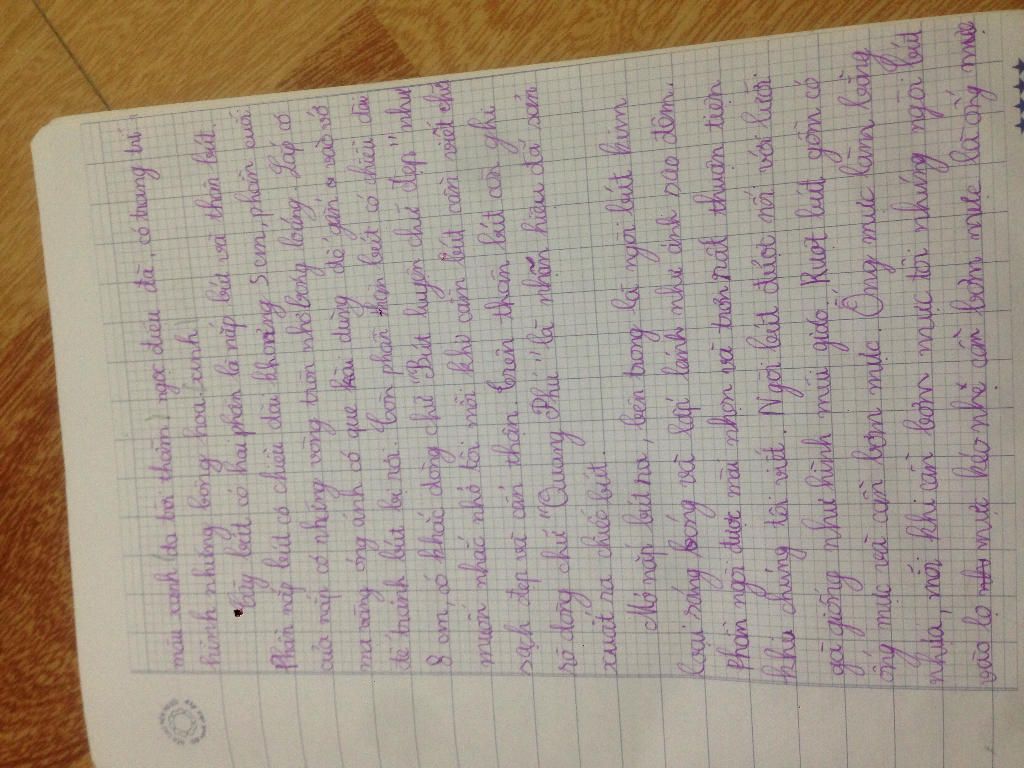 màu xanh da trời thẫm) ngọc diều đà, có trang trí
hình những bông hoa xinh)
Cây bút có hai phần là nắp bút và thân bút.
Phần nắp bút có chiều dài khoảng 5 cm, phần cuối
của nắp có những vòng tròn nhỏ bóng loáng. Lắp có
mạ vàng óng ánh có que cài dùng để gắn vào vở
để tránh bút bị rơi. Còn phần thân bút có chiều dài
8 cm, có khắc dòng chữ "Bút luyện chữ đẹp" như
muốn nhắc nhở tôi mỗi khi cầm bút cần viết chữ
sạch đẹp và cẩn thân. Trên thân bút còn ghi
rõ dòng chữ "Quang Phú" là nhãn hiệu đã sản
xuất ra chiếc bút.
Mở nắp bút ra, bên trong là ngòi bút kim
loại sáng bóng và lấp lánh như ánh sao đêm.
Phần ngòi được mài nhọn và trơn rất thuận tiện
khi chúng tôi viết. Ngòi bút được nối với lưỡi
gà giống như hình mũi giáo. Ruột bút gồm có
ống mực và cần bơm mực. Ống mực làm bằng
nhựa, nối khi cần bơm mực tới những ngòi bút
vào lọ mực kéo nhẹ cần bơm mực là ống mực